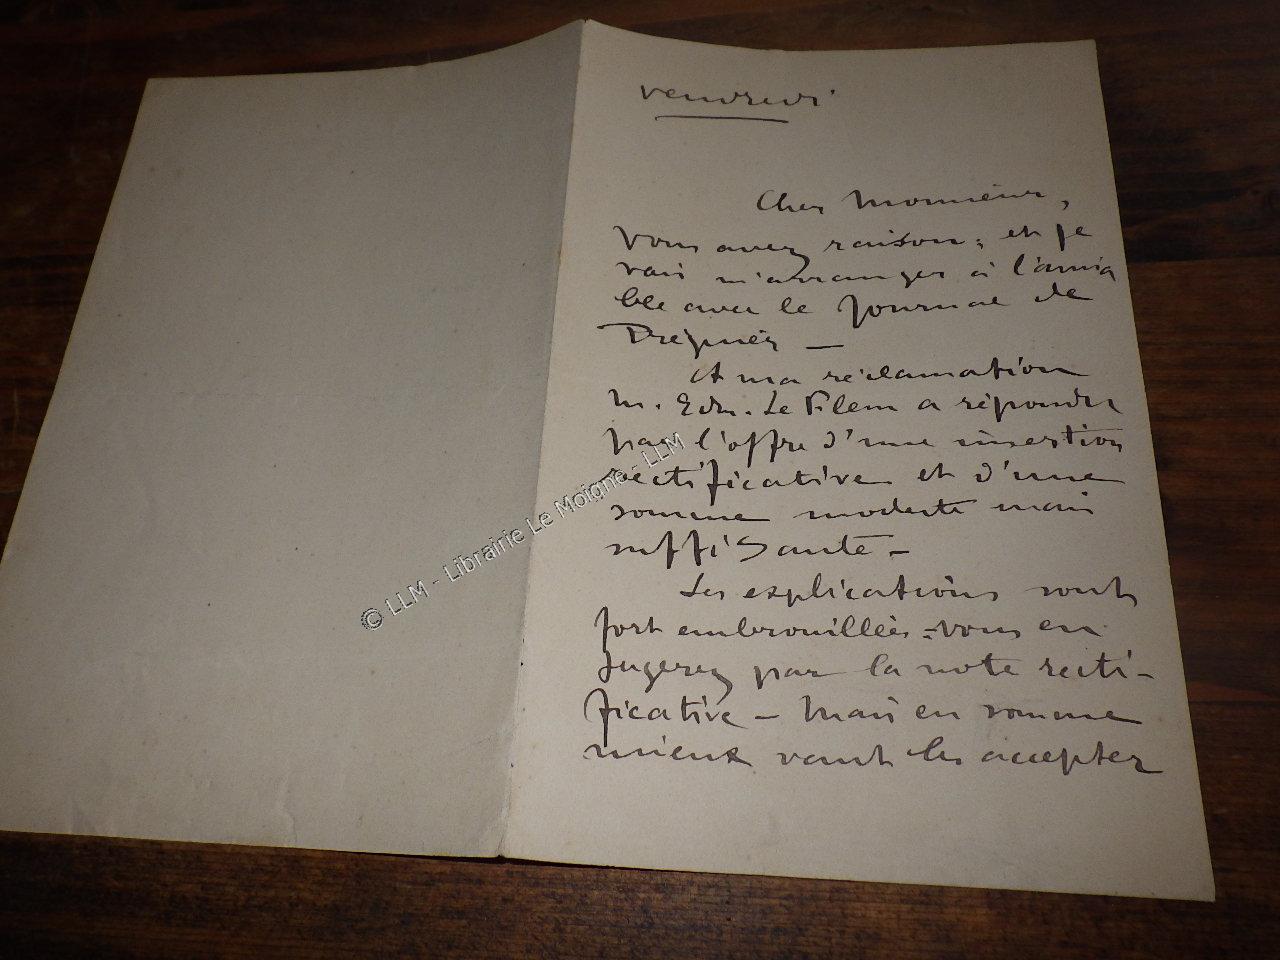 vendredi
Cher Monsieur,
Vous avez raison, et je
vais m'arranger à l'amia
ble avec le journal de
Tréguier —
A ma réclamation
M. Edm. Le Flem a répondu
par l'offre d'une insertion
rectificative et d'une
somme modeste mais
suffisante —
Les explications sont
fort embrouillées – vous en
jugerez par la note recti-
ficative — Mais en somme
mieux vaut les accepter
© LLM - Librairie Le Moigne - LLM